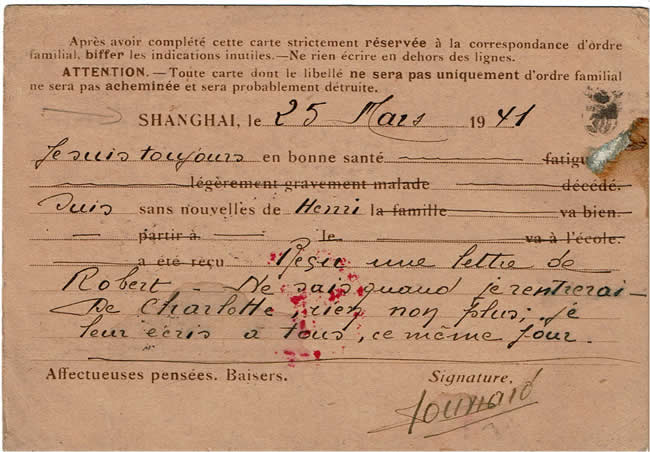 Après avoir complété cette carte strictement réservée à la correspondance d'ordre
familial, biffer les indications inutiles.—Ne rien écrire en dehors des lignes.
ATTENTION.—Toute carte dont le libellé ne sera pas uniquement d'ordre familial
ne sera pas acheminée et sera probablement détruite.
SHANGHAI, le 25 Mars 1941
Je suis toujours en bonne santé fatigu
légèrement gravement malade décédé.
Suis sans nouvelles de Henri la famille va bien.
partir à le va à l'école.
a été reçu Reçu une lettre de
Robert - Ne sais quand je rentrerai -
De Charlotte, rien non plus; je
leur écris à tous, ce même jour.
Affectueuses pensées. Baisers. Signature.